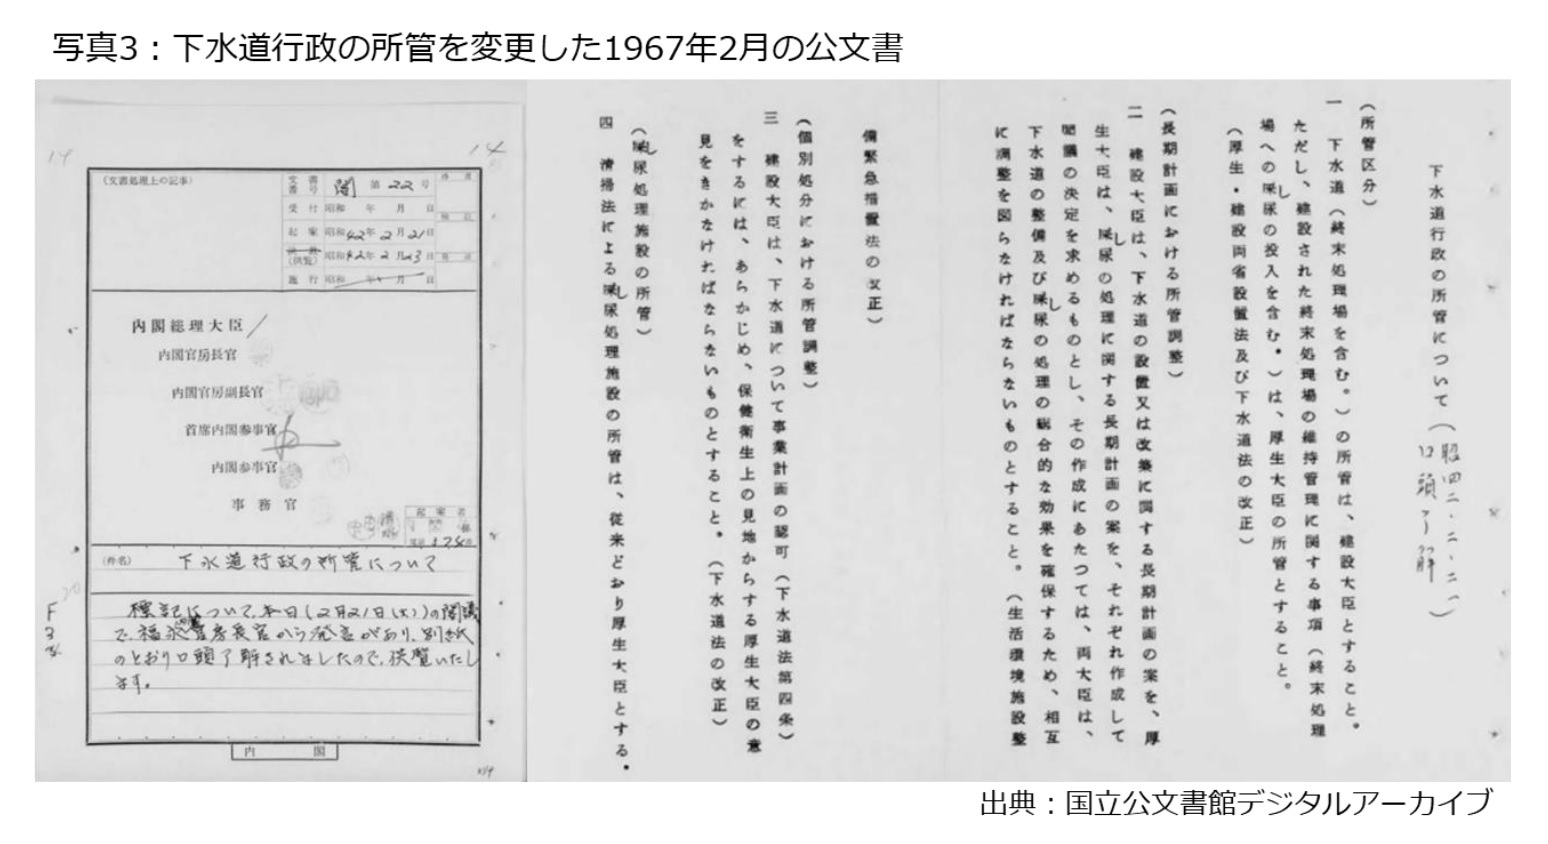 写真3：下水道行政の所管を変更した1967年2月の公文書
14
14
(文書処理上の記事)
文書番号 閣 第22号
受付 昭和 年 月 日
起案 昭和42年2月21日
(供覧) 昭和42年2月23日
施行 昭和 年 月 日
内閣総理大臣
内閣官房長官
内閣官房副長官
首席内閣参事官
内閣参事官
事務官
起案者
(件名) 下水道行政の所管について
標記について、本日(2月21日(火))の閣議
で、福永官房長官から発言があり、別紙
のとおり口頭了解されましたので、供覧いたし
ます。
内閣
下水道行政の所管について(昭四二・二・二一)
口頭了解
(所管区分)
一 下水道(終末処理場を含む。)の所管は、建設大臣とすること。
ただし、建設された終末処理場の維持管理に関する事項(終末処理
場へのし尿の投入を含む。)は、厚生大臣の所管とすること。
(厚生・建設両省設置法及び下水道法の改正)
(長期計画における所管調整)
二 建設大臣は、下水道の設置又は改築に関する長期計画の案を、厚
生大臣は、し尿の処理に関する長期計画の案を、それぞれ作成して
閣議の決定を求めるものとし、その作成にあたつては、両大臣は、
下水道の整備及びし尿の処理の総合的な効果を確保するため、相互
に調整を図らなければならないものとすること。(生活環境施設整
備緊急措置法の改正)
(個別処分における所管調整)
三 建設大臣は、下水道について事業計画の認可(下水道法第四条)
をするには、あらかじめ、保健衛生上の見地からする厚生大臣の意
見をきかなければならないものとすること。(下水道法の改正)
(し尿処理施設の所管)
四 清掃法によるし尿処理施設の所管は、従来どおり厚生大臣とする。
出典：国立公文書館デジタルアーカイブ